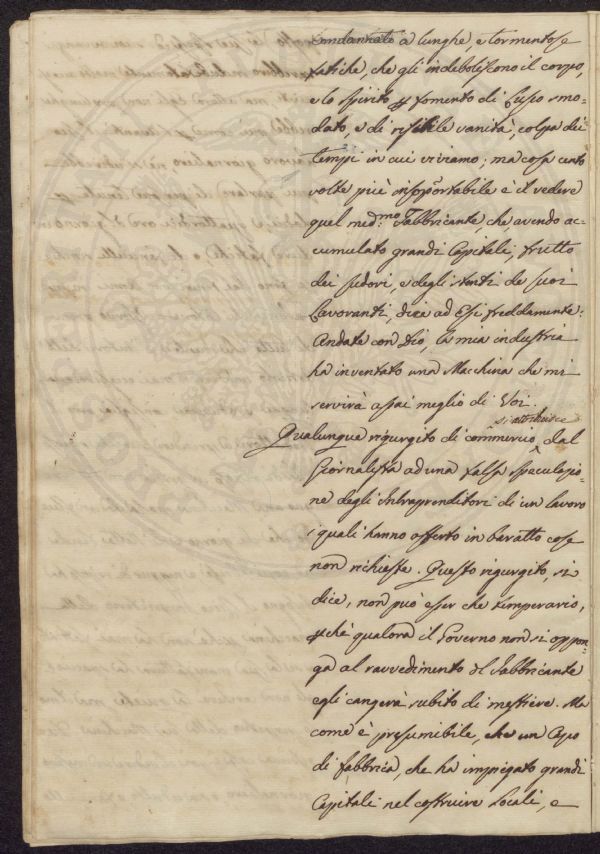 condannato a lunghe, e tormentose
fatiche, che gli indeboliscono il corpo,
e lo spirito p fomento di lusso smo-
dato, e di risibile vanità, colpa dei
tempi in cui viviamo; ma cosa cento
volte più insopportabile è il vedere
quel med:mo Fabbricante che avendo ac-
cumulato grandi Capitali, frutto
dei sudori, e degli stenti de suoi
Lavoranti, dica ad Essi freddamente:
Andate con Dio, la mia industria
ha inventato una Macchina che mi
servirà assai meglio di Voi.
si attribuisce
Qualunque rigurgito di commercio, dal
Giornalista ad una falsa speculazio-
ne degli Intraprenditori di un lavoro
i quali hanno offerto in baratto cose
non richieste. Questo rigurgito, si
dice, non può esser che temperario,
pchè qualora il Governo non si oppon-
ga al ravvedimento del Fabbricante
egli cangerà subito di mestiere. Ma
come è presumibile, che un Capo
di fabbrica, che ha impiegato grandi
Capitali nel costruire Locali, e